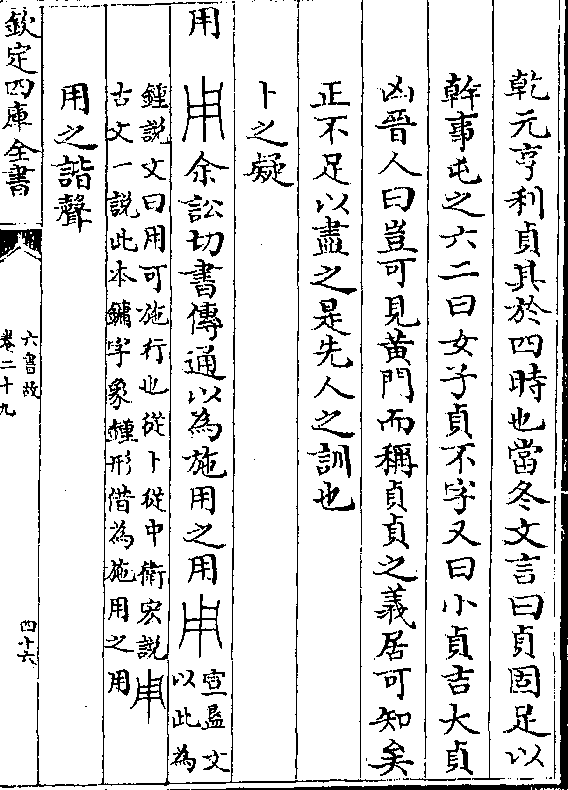 乾元亨利貞其於四時也當冬文言曰貞固足以
幹事屯之六二曰女子貞不字又曰小貞吉大貞
凶晉人曰豈可見黃門而稱貞貞之義居可知矣
正不足以盡之是先人之訓也
卜之疑
用 余訟切書傳通以為施用之用 宣 文
以此為
鍾說文曰用可施行也從卜從中衛宏說
古文一說此本鏞字象鍾形借為施用之用
用之諧聲
欽定四庫全書
六書故
卷二十九
四十六